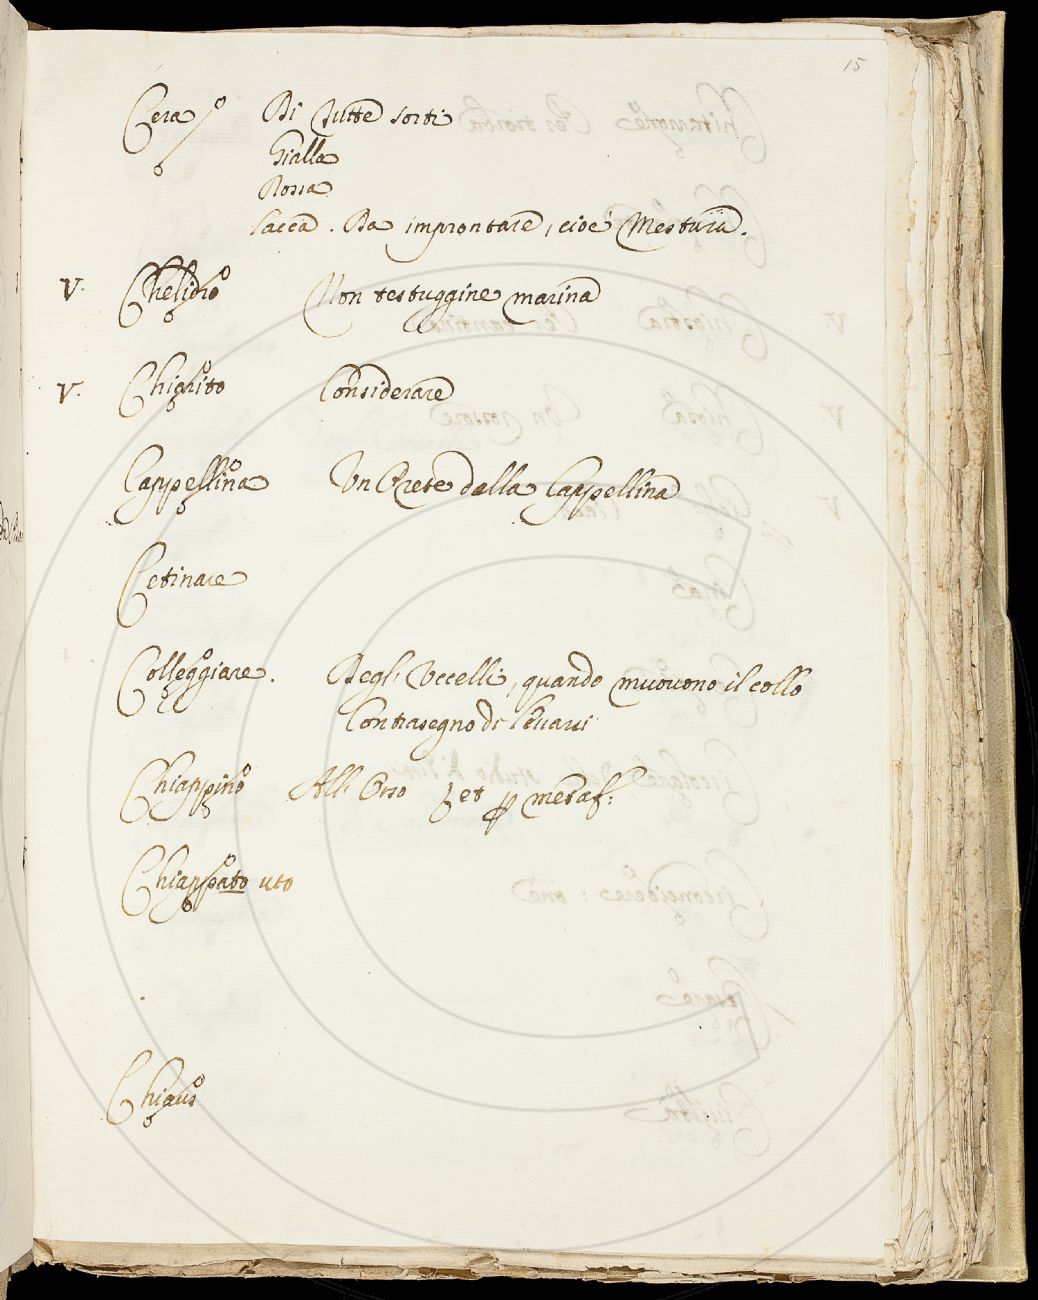 15
Cera Di tutte sorti
Gialla
Rossa
Lacca. Da improntare, cioè Mestura.
V. Chelidro Non testuggine marina
V. Chiarito Considerare
Cappellina Un Prete dalla Cappellina
Cetinare
Colleggiare. Degl' Uccelli, quando muouono il collo
Contrasegno di leuarsi
Chiappino All' Orso et p metaf:
Chiappato uto
Chiaus